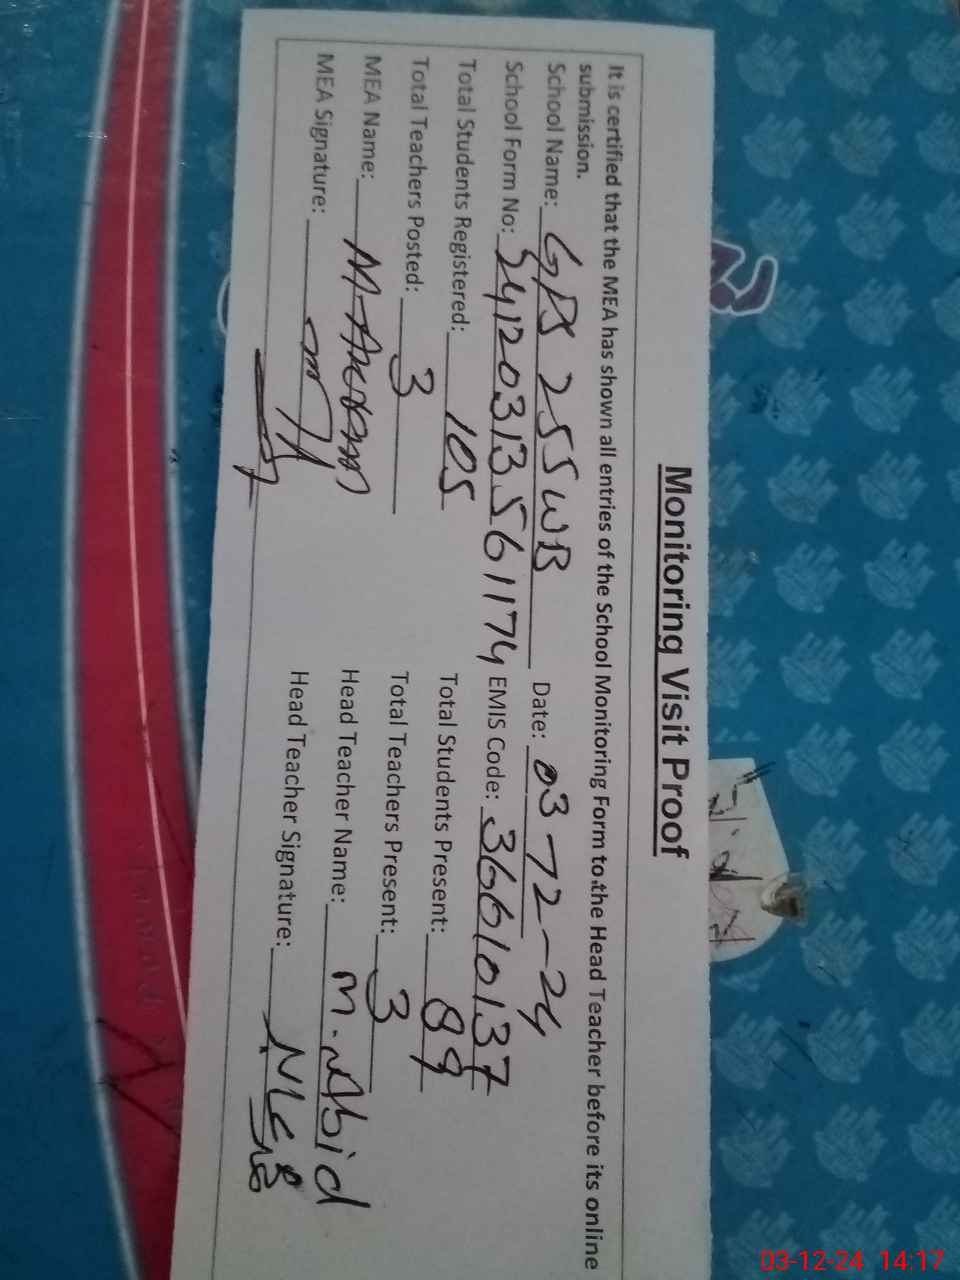 Monitoring Visit Proof
It is certified that the MEA has shown all entries of the School Monitoring Form to the Head Teacher before its online
submission.
School Name: GPS 255 WB Date: 03-12-24
School Form No: 54120313561174 EMIS Code: 36610137
Total Students Registered: 105 Total Students Present: 89
Total Teachers Posted: 3 Total Teachers Present: 3
MEA Name: M- Head Teacher Name: M. Abid
MEA Signature: Head Teacher Signature:
03-12-24 14:17